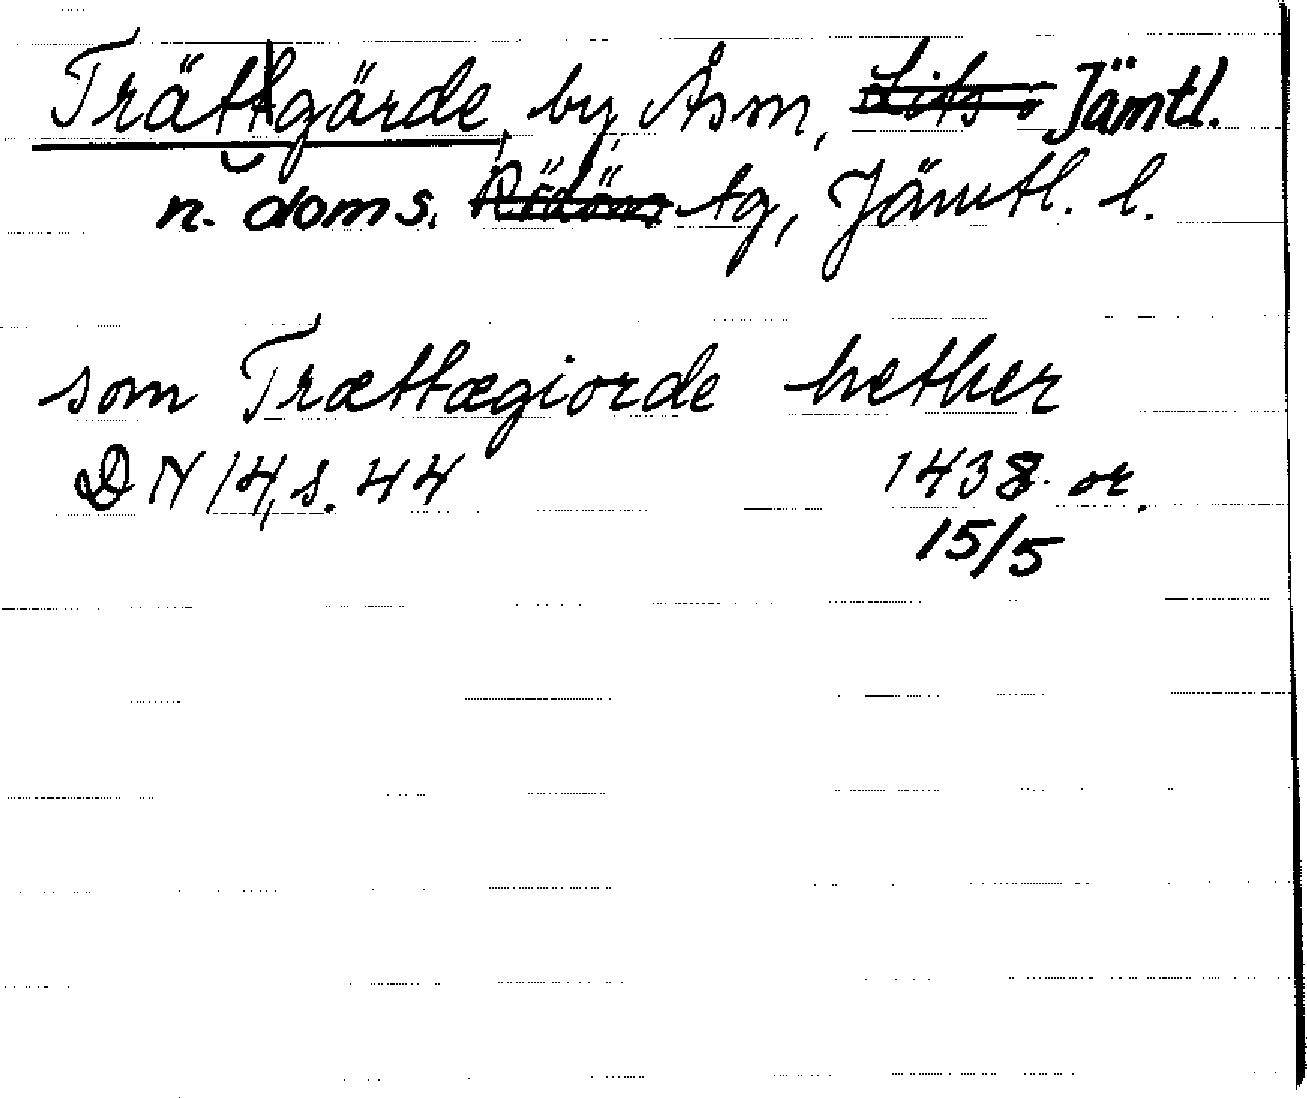 Trättgärde, by, Åsm, Lits o Jämtl.
n. doms. Rödöns tg, Jämtl. l.
som Trættægiorde hether
DN 14, s. 44 1438 or.
15/5